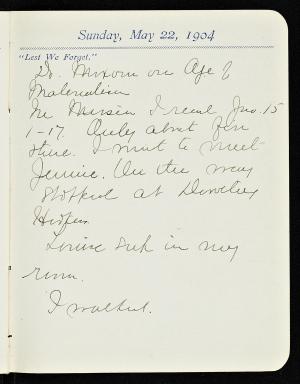 Sunday, May 22, 1904
"Lest We Forget."
Dr. on Age of
Materialism
In Mission I read Jno. 15
1-17. Only about
there. I went to meet
Jennie. On the way
stopped at
Louise sick in my
room.
I walked.